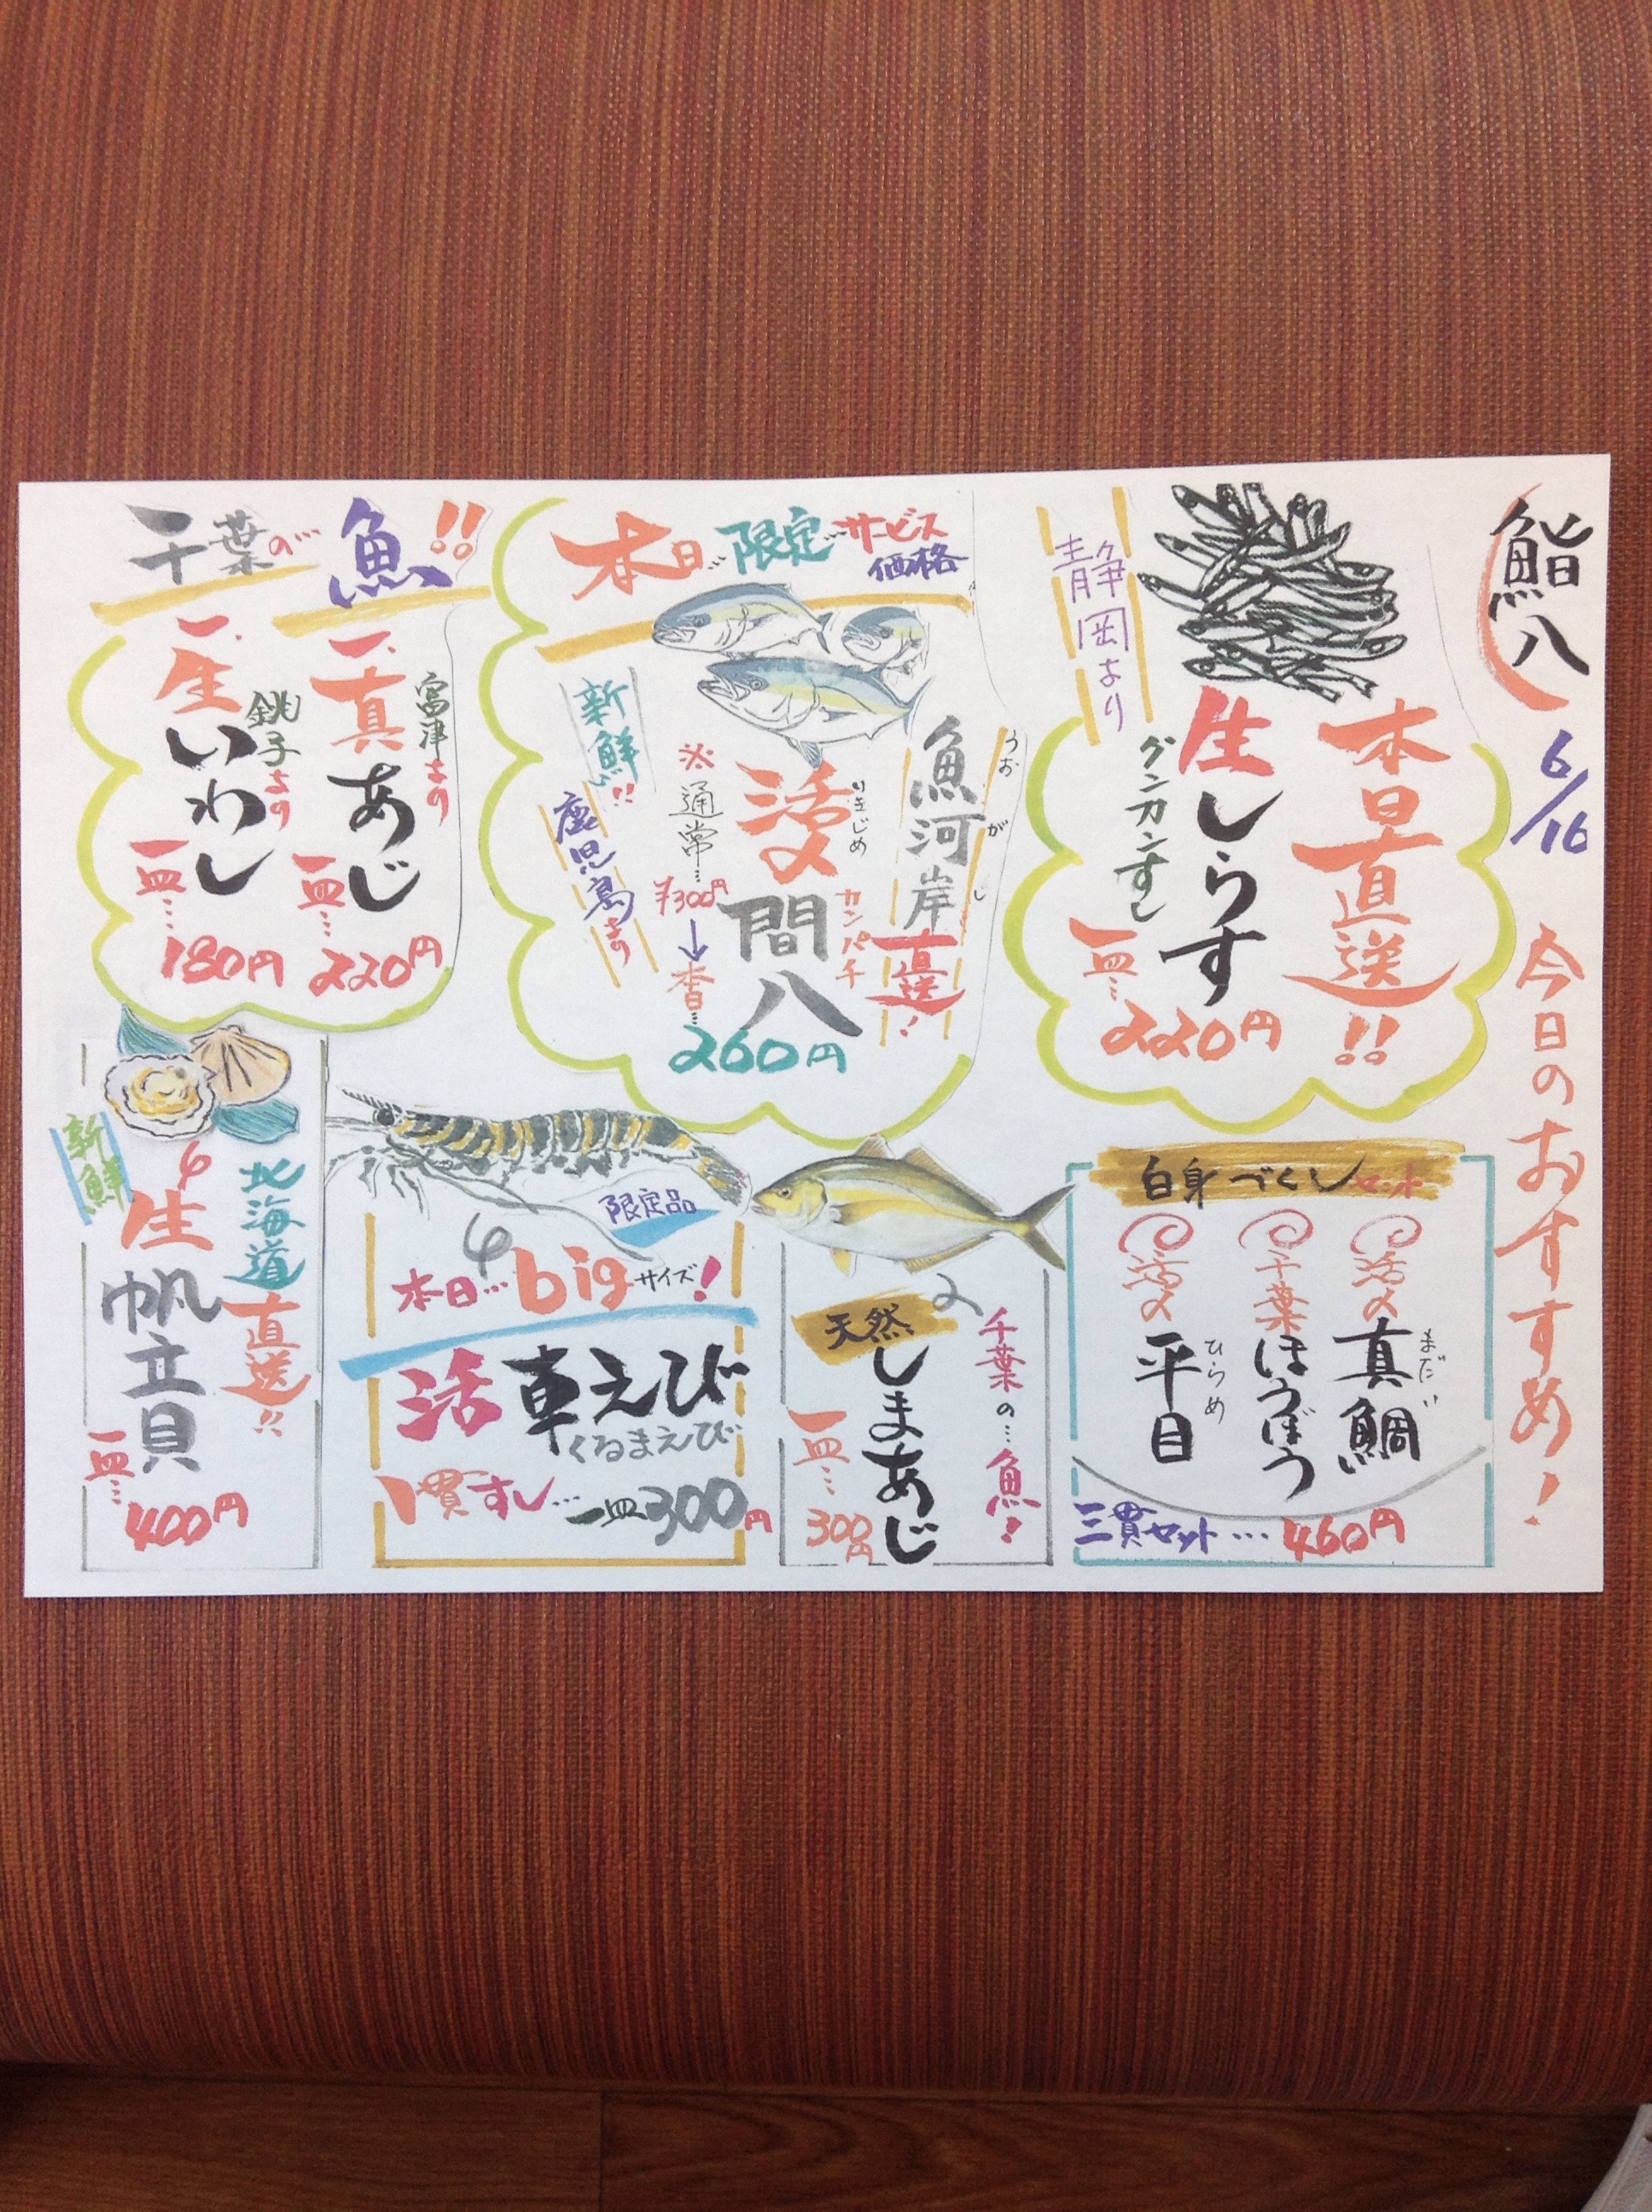 鮨八
6/16
今日のおすすめ!
静岡より
本日直送!!
生しらす
グンカンすし
一皿…
220円
本日…限定…サービス
価格
魚河岸
うおがし
直送!
活〆
いきじめ
間八
カンパチ
新鮮!!
鹿児島より
※通常…
¥300円
↓
260円
千葉の…魚!!
富津より
一.真あじ
一皿…
220円
銚子より
一.生いわし
一皿…
180円
白身づくしセット
活〆真鯛
まだい
千葉ほうぼう
活〆平目
ひらめ
三貫セット…460円
千葉の…魚!
天然
しまあじ
一皿…
300円
限定品
本日…bigサイズ!
活車えび
くるまえび
1貫すし…一皿300円
新鮮
北海道直送!!
生帆立貝
一皿…
400円